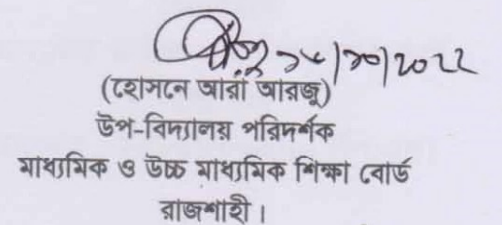 ২৮/১০/২০২২
(হোসনে আরা আরজু)
উপ-বিদ্যালয় পরিদর্শক
মাধ্যমিক ও উচ্চ মাধ্যমিক শিক্ষা বোর্ড
রাজশাহী।